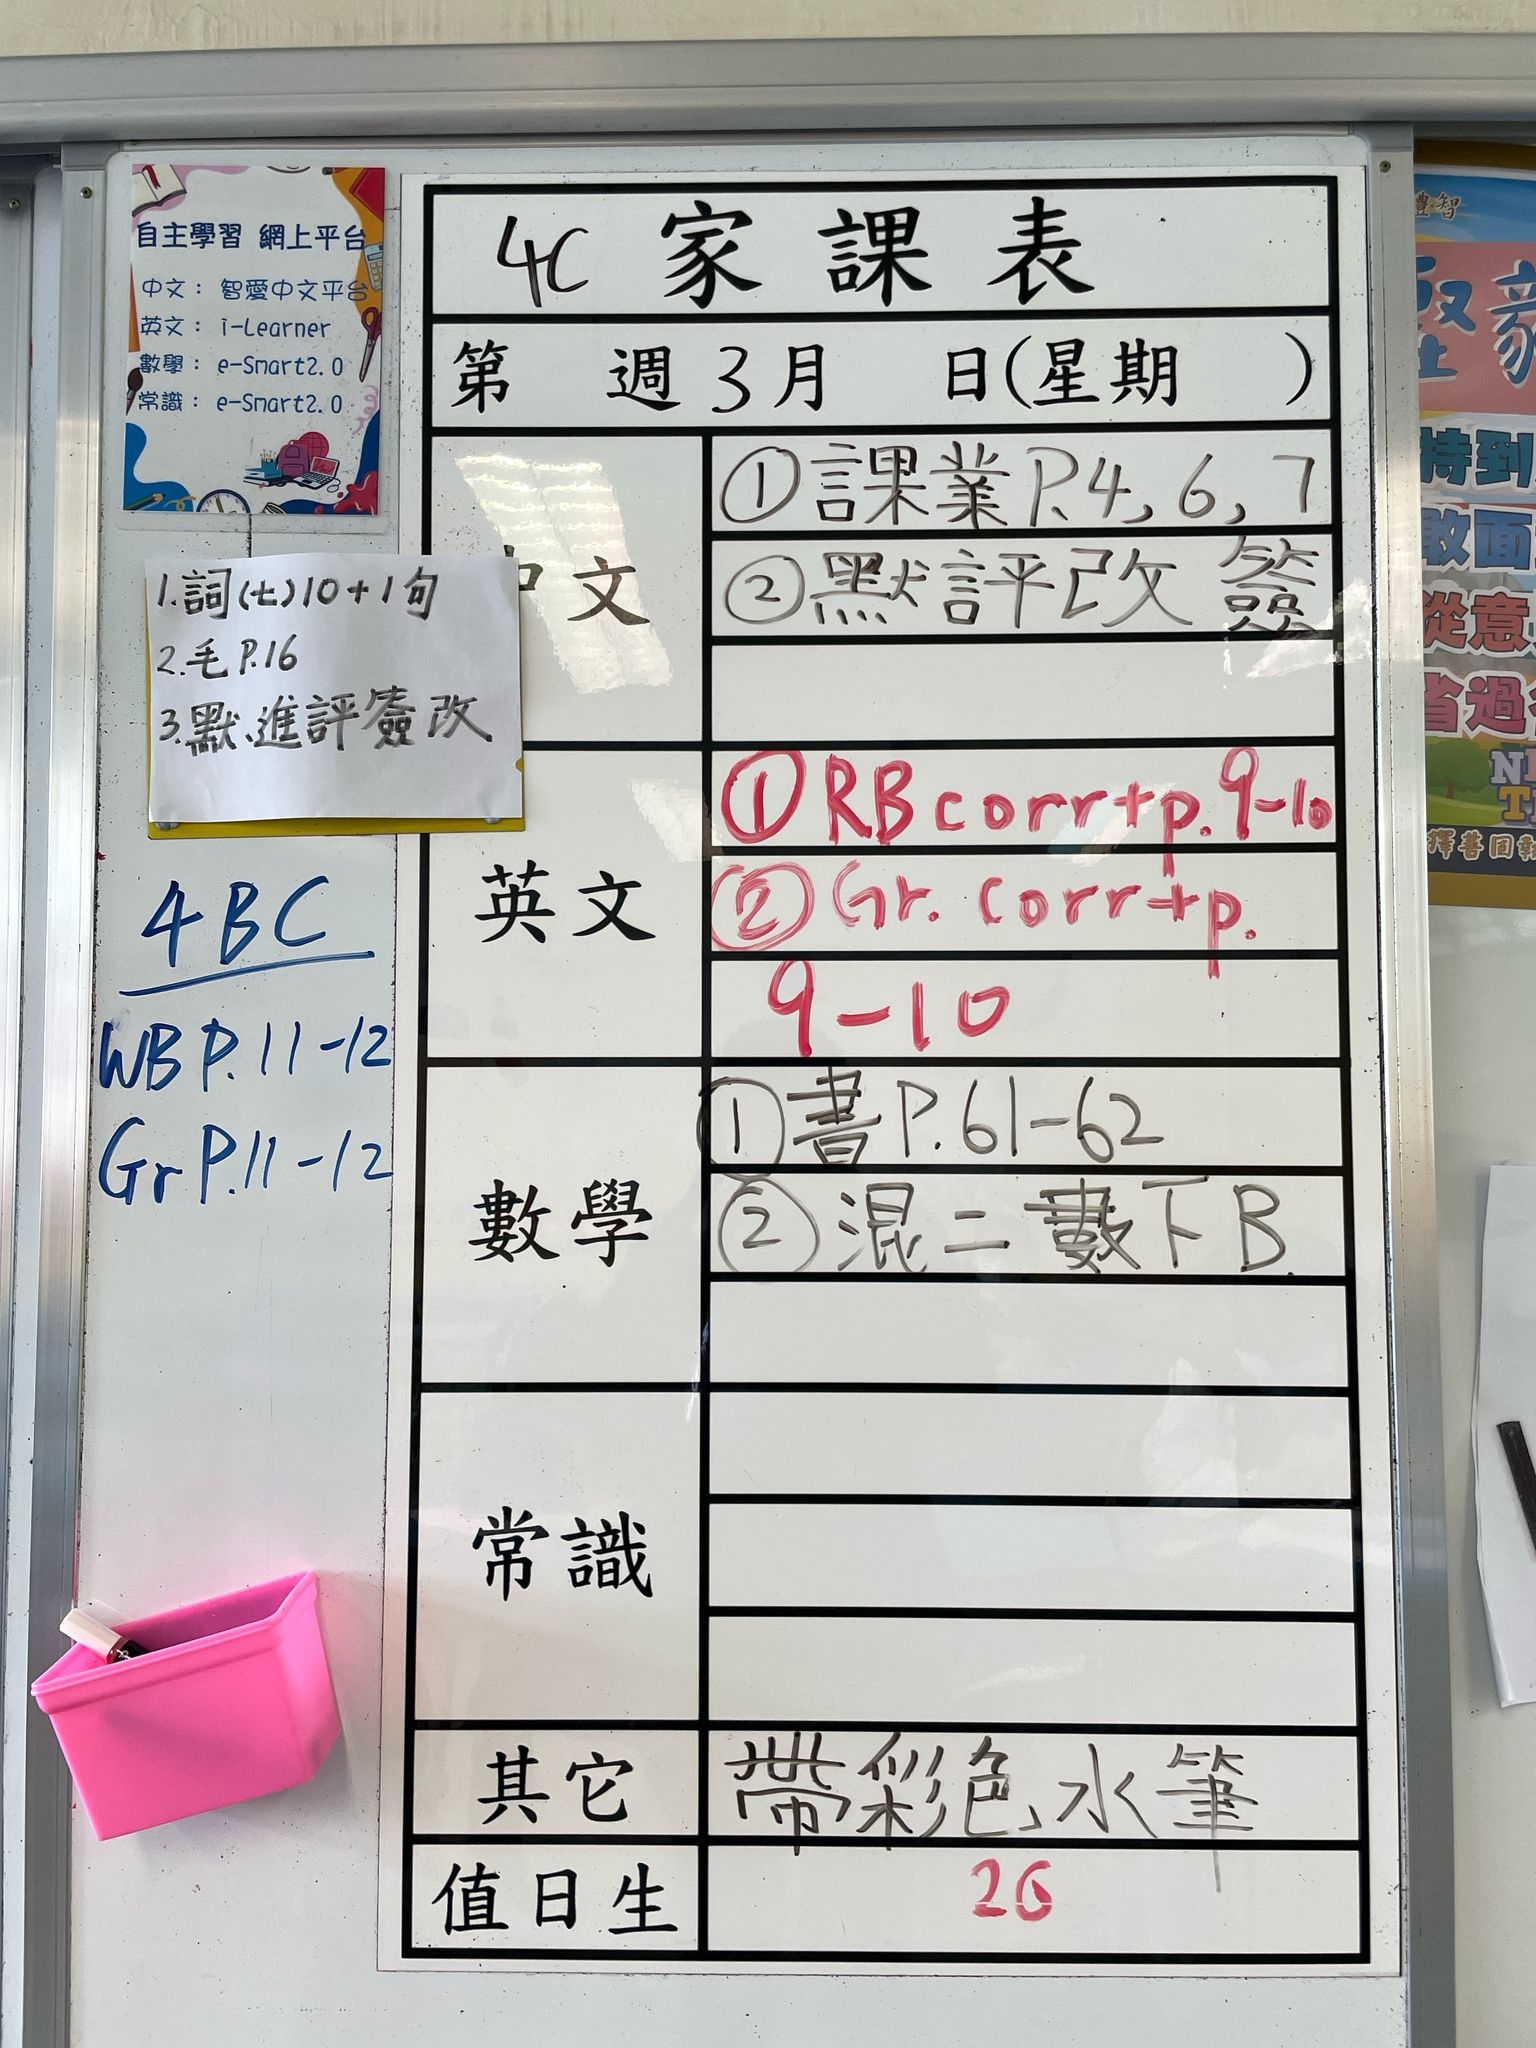 自主學習 網上平台
中文： 智愛中文平台
英文： i-Learner
數學： e-Smart2.0
常識： e-Smart2.0
1.詞(七)10+1句
2.毛P.16
3.默進評簽改
4BC
WB P.11-12
Gr P.11-12
4C 家課表
第 週3月 日(星期 )
中文
①課業P.4, 6, 7
②默評改 簽
英文
①RB corr+p.9-10
②Gr. corr+p.
9-10
數學
①書P.61-62
②混二數下B.
常識
其它
帶彩色水筆
值日生
26
禮智
特到
敢面
從意
省過
擇善固